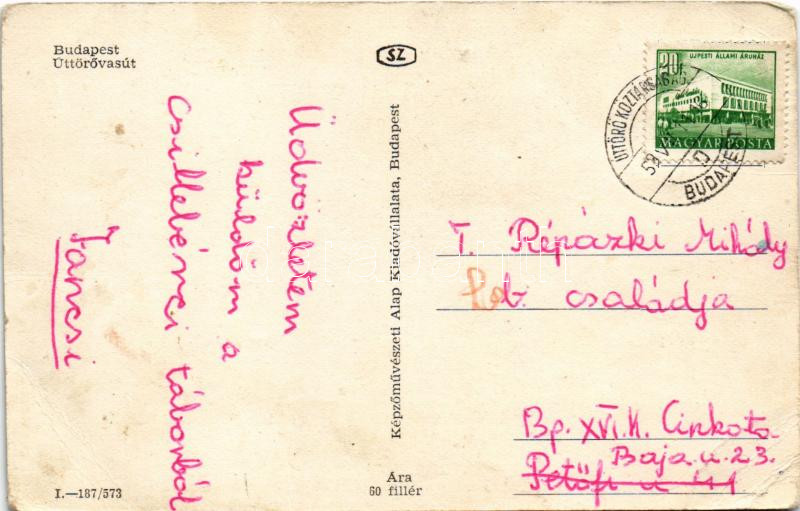 Budapest
Úttörővasút
SZ
Üdvözletem
küldöm a
csillebérci táborból
Jancsi
Képzőművészeti Alap Kiadóvállalata, Budapest
I.—187/573
Ára
60 fillér
20f.
UJPESTI ÁLLAMI ÁRUHÁZ
MAGYAR POSTA
ÚTTÖRŐ KÖZTÁRSASÁG
BUDAPEST
T. Répázki Mihály
b. családja
Bp. XVI. k. Cinkota
Baja u. 23.
Petőfi u 41